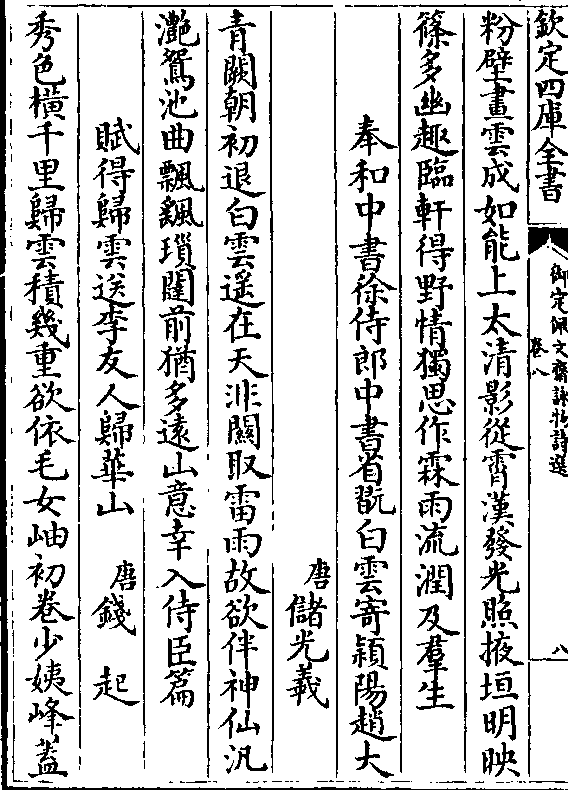 欽定四庫全書
御定佩文齋詠物詩選
卷八
八
粉壁畫雲成如能上太清影從霄漢發光照掖垣明映
篠多幽趣臨軒得野情獨思作霖雨流潤及羣生
奉和中書徐侍郎中書省翫白雲寄潁陽趙大
唐儲光羲
青闕朝初退白雲遥在天非關取雷雨故欲伴神仙汎
灔鴛池曲飄颻瑣闥前猶多遠山意幸入侍臣篇
賦得歸雲送李友人歸華山
唐錢起
秀色橫千里歸雲積幾重欲依毛女岫初卷少姨峰蓋